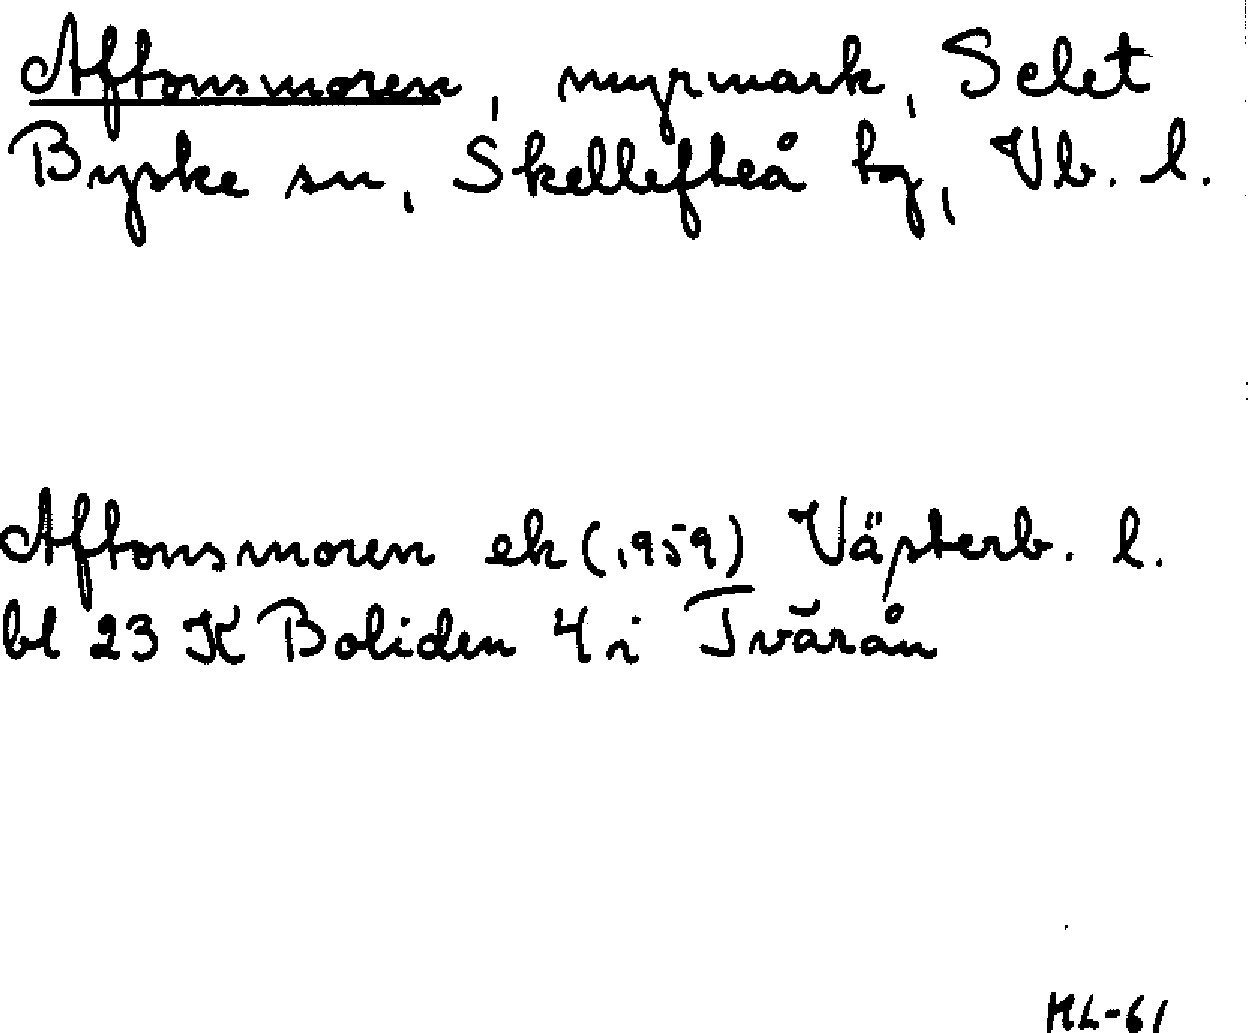 Aftonsmoren, myrmark, Selet
Byske sn, Skellefteå tg, Vb. l.
Aftonsmoren ek (1959) Västerb. l.
bl 23 K Boliden 4 i Tvärån
ML-61